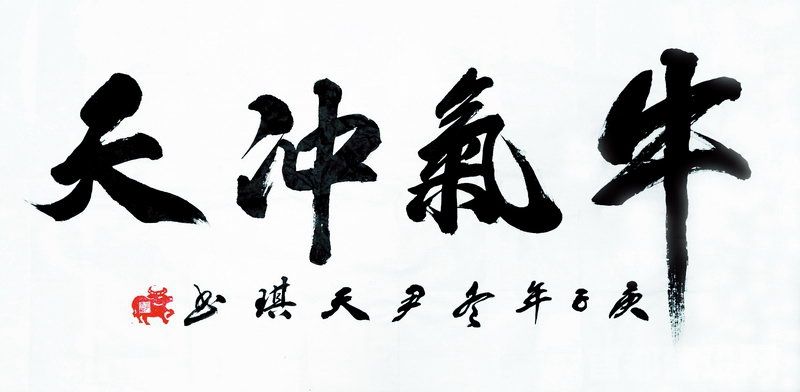 牛氣冲天
庚子年冬尹天琪书